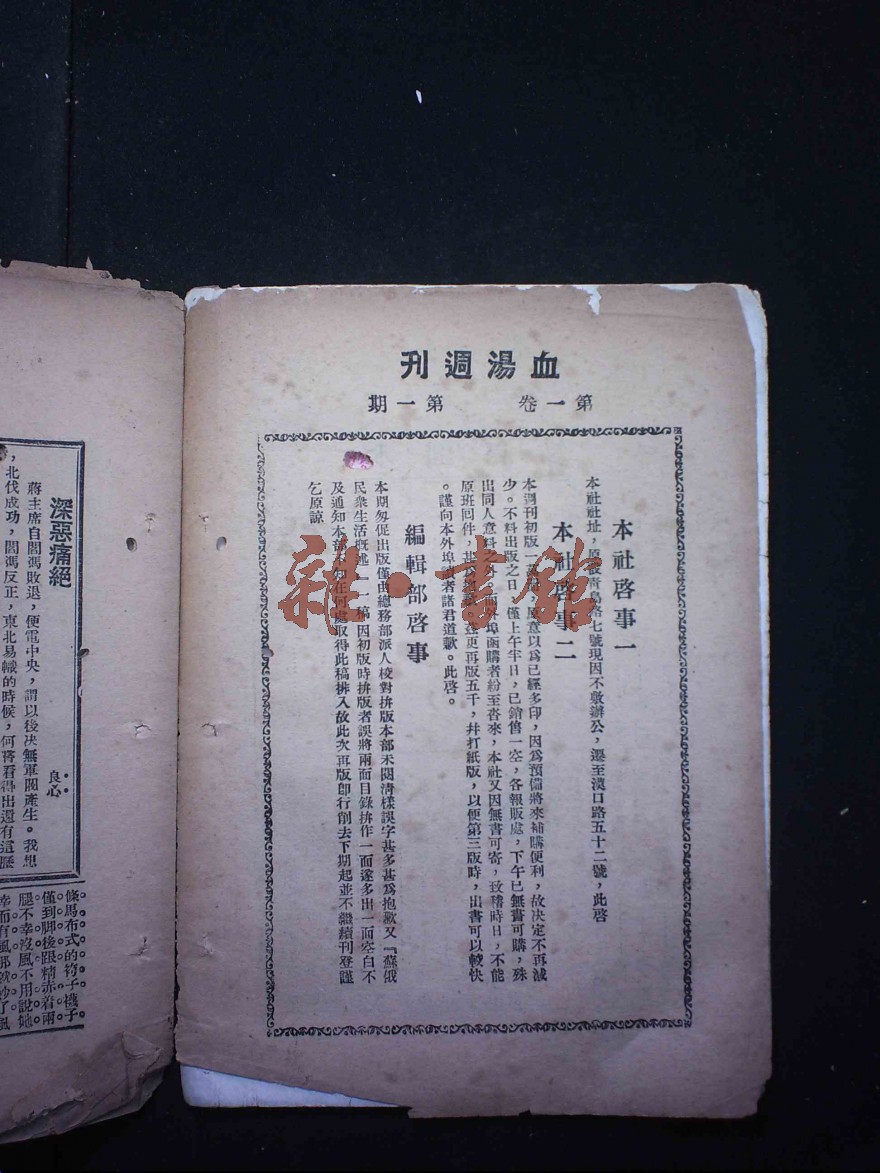 血湯週刊
第一卷 第一期
本社啓事一
本社社址，原設靑島路七號現因不敷辦公，遷至漢口路五十二號，此啓
本社啓事二
本週刊初版一萬，原意以爲已經多印，因爲預備將來補購便利，故决定不再減
少。不料出版之日，僅上午半日，已銷售一空，各報販處，下午已無書可購，殊
出同人意料之外。而外埠函購者紛至沓來，本社又因無書可寄，致稽時日，不能
原班回件，甚爲抱歉，茲更再版五千，幷打紙版，以便第三版時，出書可以較快
。謹向本外埠讀者諸君道歉。此啓。
編輯部啓事
本期匆促出版僅由總務部派人校對拚版本部未閱淸樣誤字甚多甚爲抱歉又『蘇俄
民衆生活概述』一稿因初版時拚版者誤將兩面目錄拚作一面遂多出一面空白不
及通知本部不知在何處取得此稿排入故此次再版卽行削去下期起並不繼續刊登謹
乞原諒
雜·書館
深惡痛絕
良心
蔣主席自閻馮敗退，便電中央，謂以後决無軍閥產生。我想
，北伐成功，閻馮反正，東北易幟的時候，何嘗看得出還有這歷
條馬布式的袴子襪子
僅到脚後跟精赤着兩
腿不幸沒風不用說她